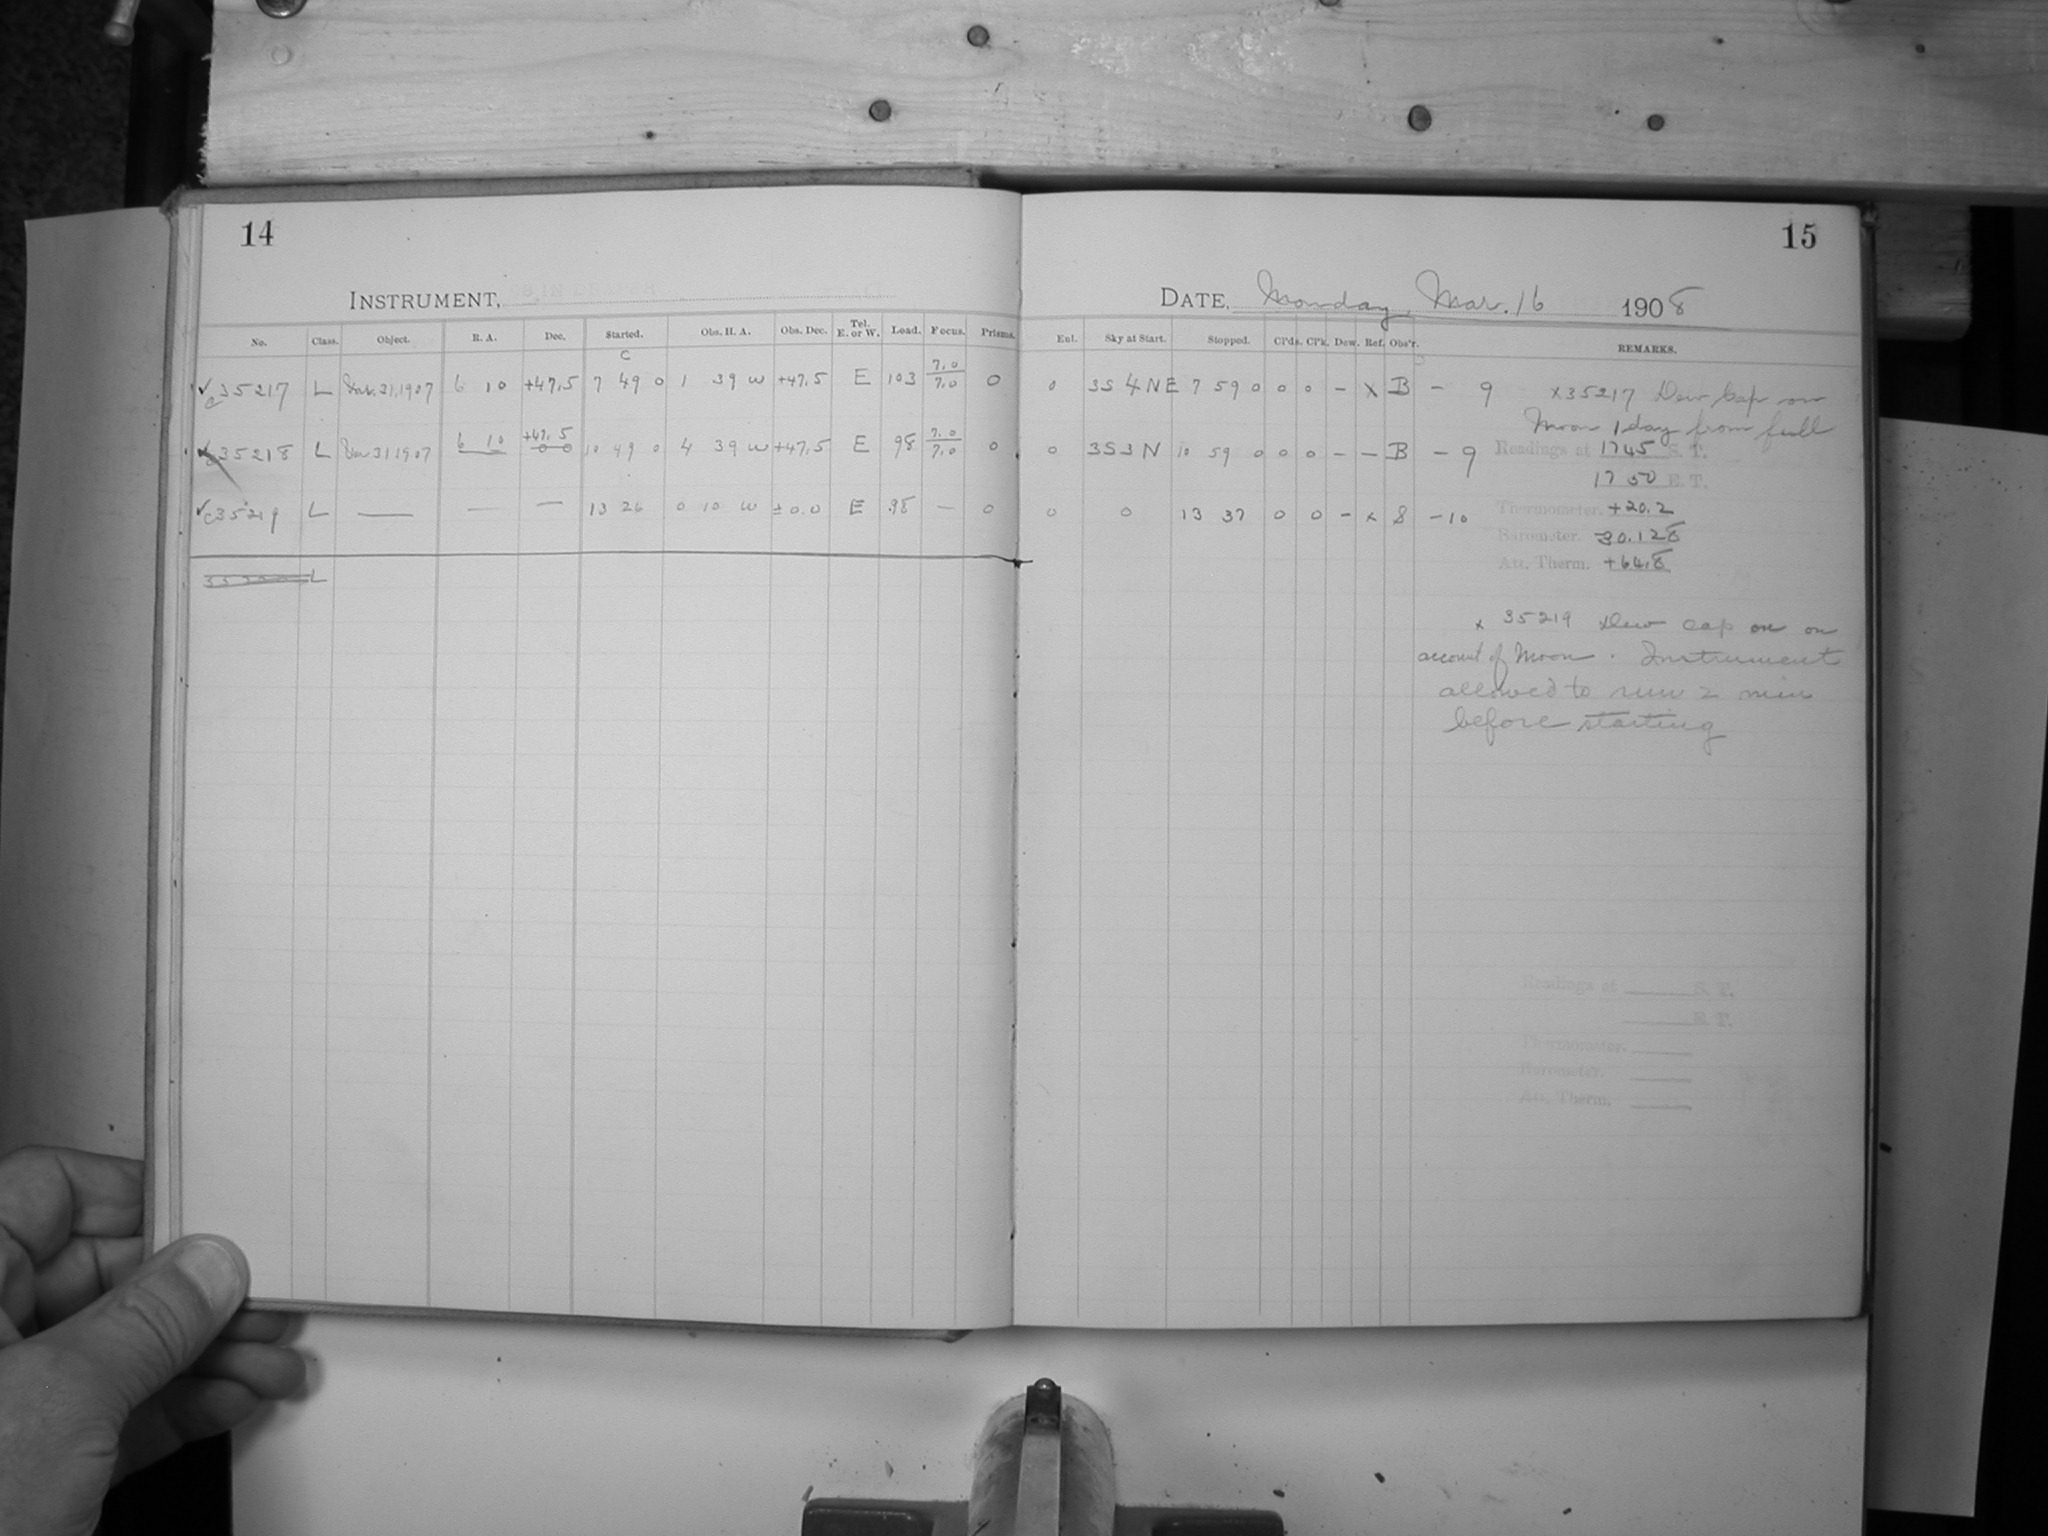 14
15
INSTRUMENT,
DATE, Monday, Mar. 16 1908
No. Class. Object. R. A. Dec. Started. Obs. H. A. Obs. Dec. Tel. E. or W. Load. Focus. Prisms. Enl. Sky at Start. Stopped. Cl'ds. Cl'k. Dew. Ref. Obs'r. REMARKS.
C
✓ C35217 L 31, 1907 6 10 +47.5 7 49 0 1 39 W +47.5 E 103 7.0/7.0 0 0 3S4NE 7 59 0 0 0 – X B – 9 x35217 Dew Cap on
Moon 1 day from full
C35218 L 31 1907 6 10 +47.5 10 49 0 4 39 W +47.5 E 98 7.0/7.0 0 0 3S3N 10 59 0 0 0 – – B – 9 Readings at 1745 S. T.
1750 E. T.
✓ C35219 L — — — 13 26 0 10 W ±0.0 E .98 — 0 0 0 13 37 0 0 – x S –10 Thermometer. +20.2
Barometer. 30.128
Att. Therm. +64.8
L
x 35219 Dew Cap on on
account of Moon. Instrument
allowed to run 2 min
before starting
Readings at S. T.
E. T.
Thermometer.
Barometer.
Att. Therm.